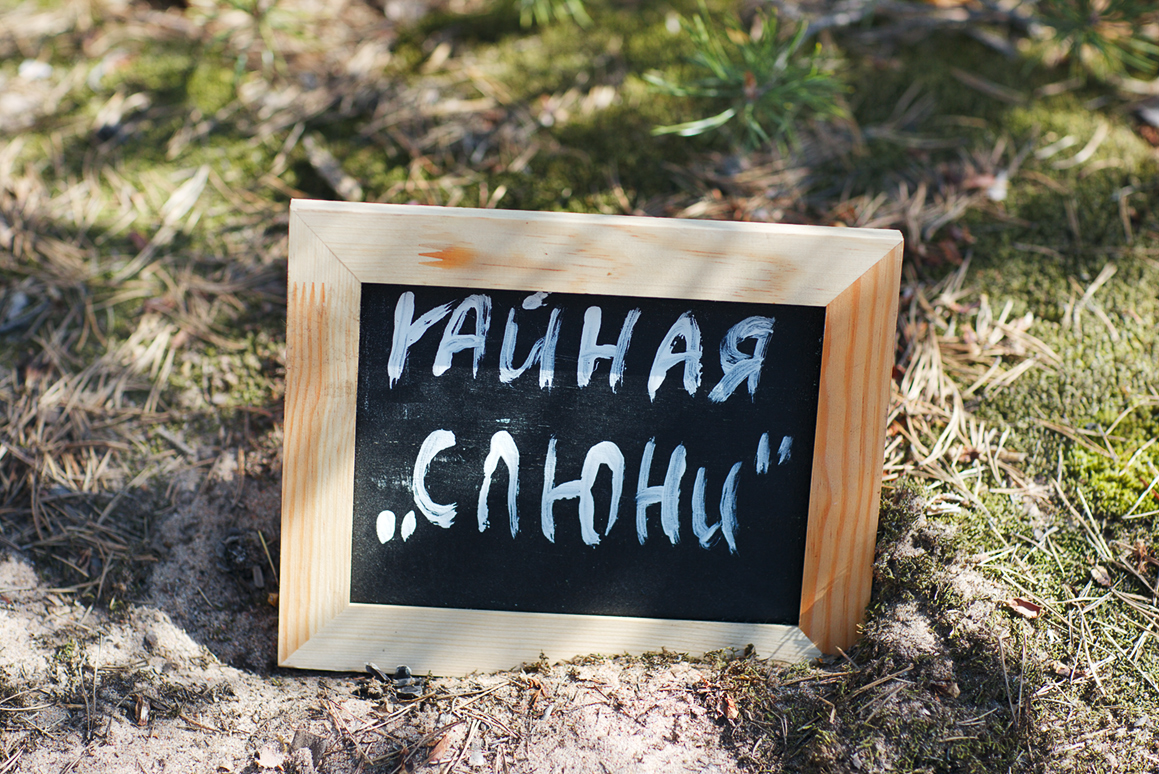 ЧАЙНАЯ
„СЛЮНИ"